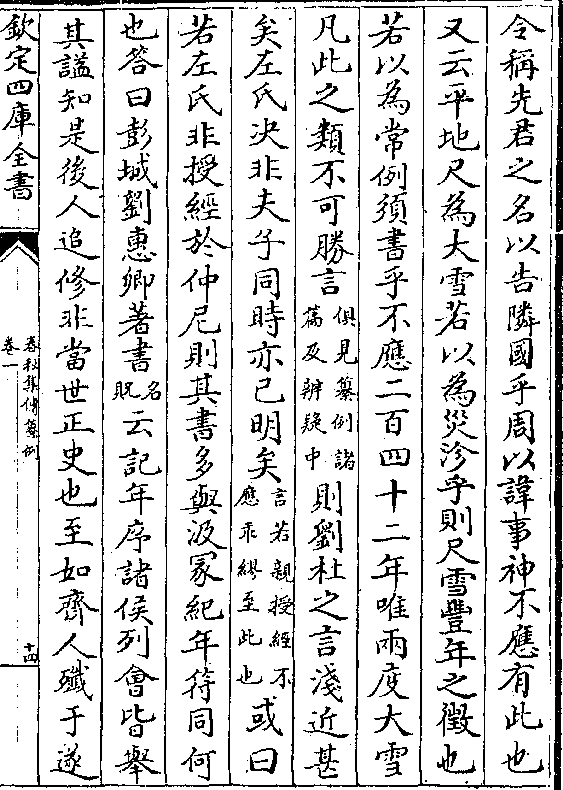 令稱先君之名以告隣國乎周以諱事神不應有此也
又云平地尺為大雪若以為災沴乎則尺雪豐年之徵也
若以為常例須書乎不應二百四十二年唯兩度大雪
凡此之類不可勝言俱見纂例諸篇及辨疑中則劉杜之言淺近甚
矣左氏决非夫子同時亦已明矣言若親授經不應乖繆至此也或曰
若左氏非授經於仲尼則其書多與汲冡紀年符同何
也答曰彭城劉惠卿著書名貺云記年序諸侯列會皆舉
其諡知是後人追修非當世正史也至如齊人殲于遂
欽定四庫全書
春秋集傳纂例
卷一
十四